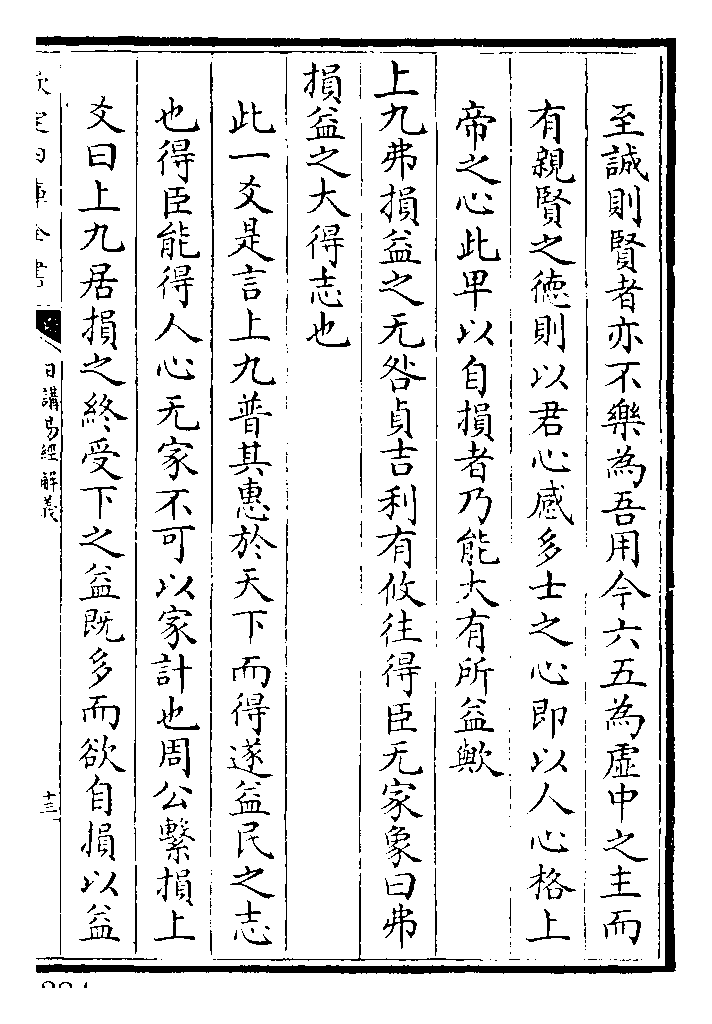 至誠則賢者亦不樂為吾用今六五為虛中之主而
有親賢之德則以君心感多士之心即以人心格上
帝之心此卑以自損者乃能大有所益歟
上九弗損益之无咎貞吉利有攸往得臣无家象曰弗
損益之大得志也
此一爻是言上九普其惠於天下而得遂益民之志
也得臣能得人心无家不可以家計也周公繫損上
爻曰上九居損之終受下之益既多而欲自損以益
欽定四庫全書
日講易經解義
十三